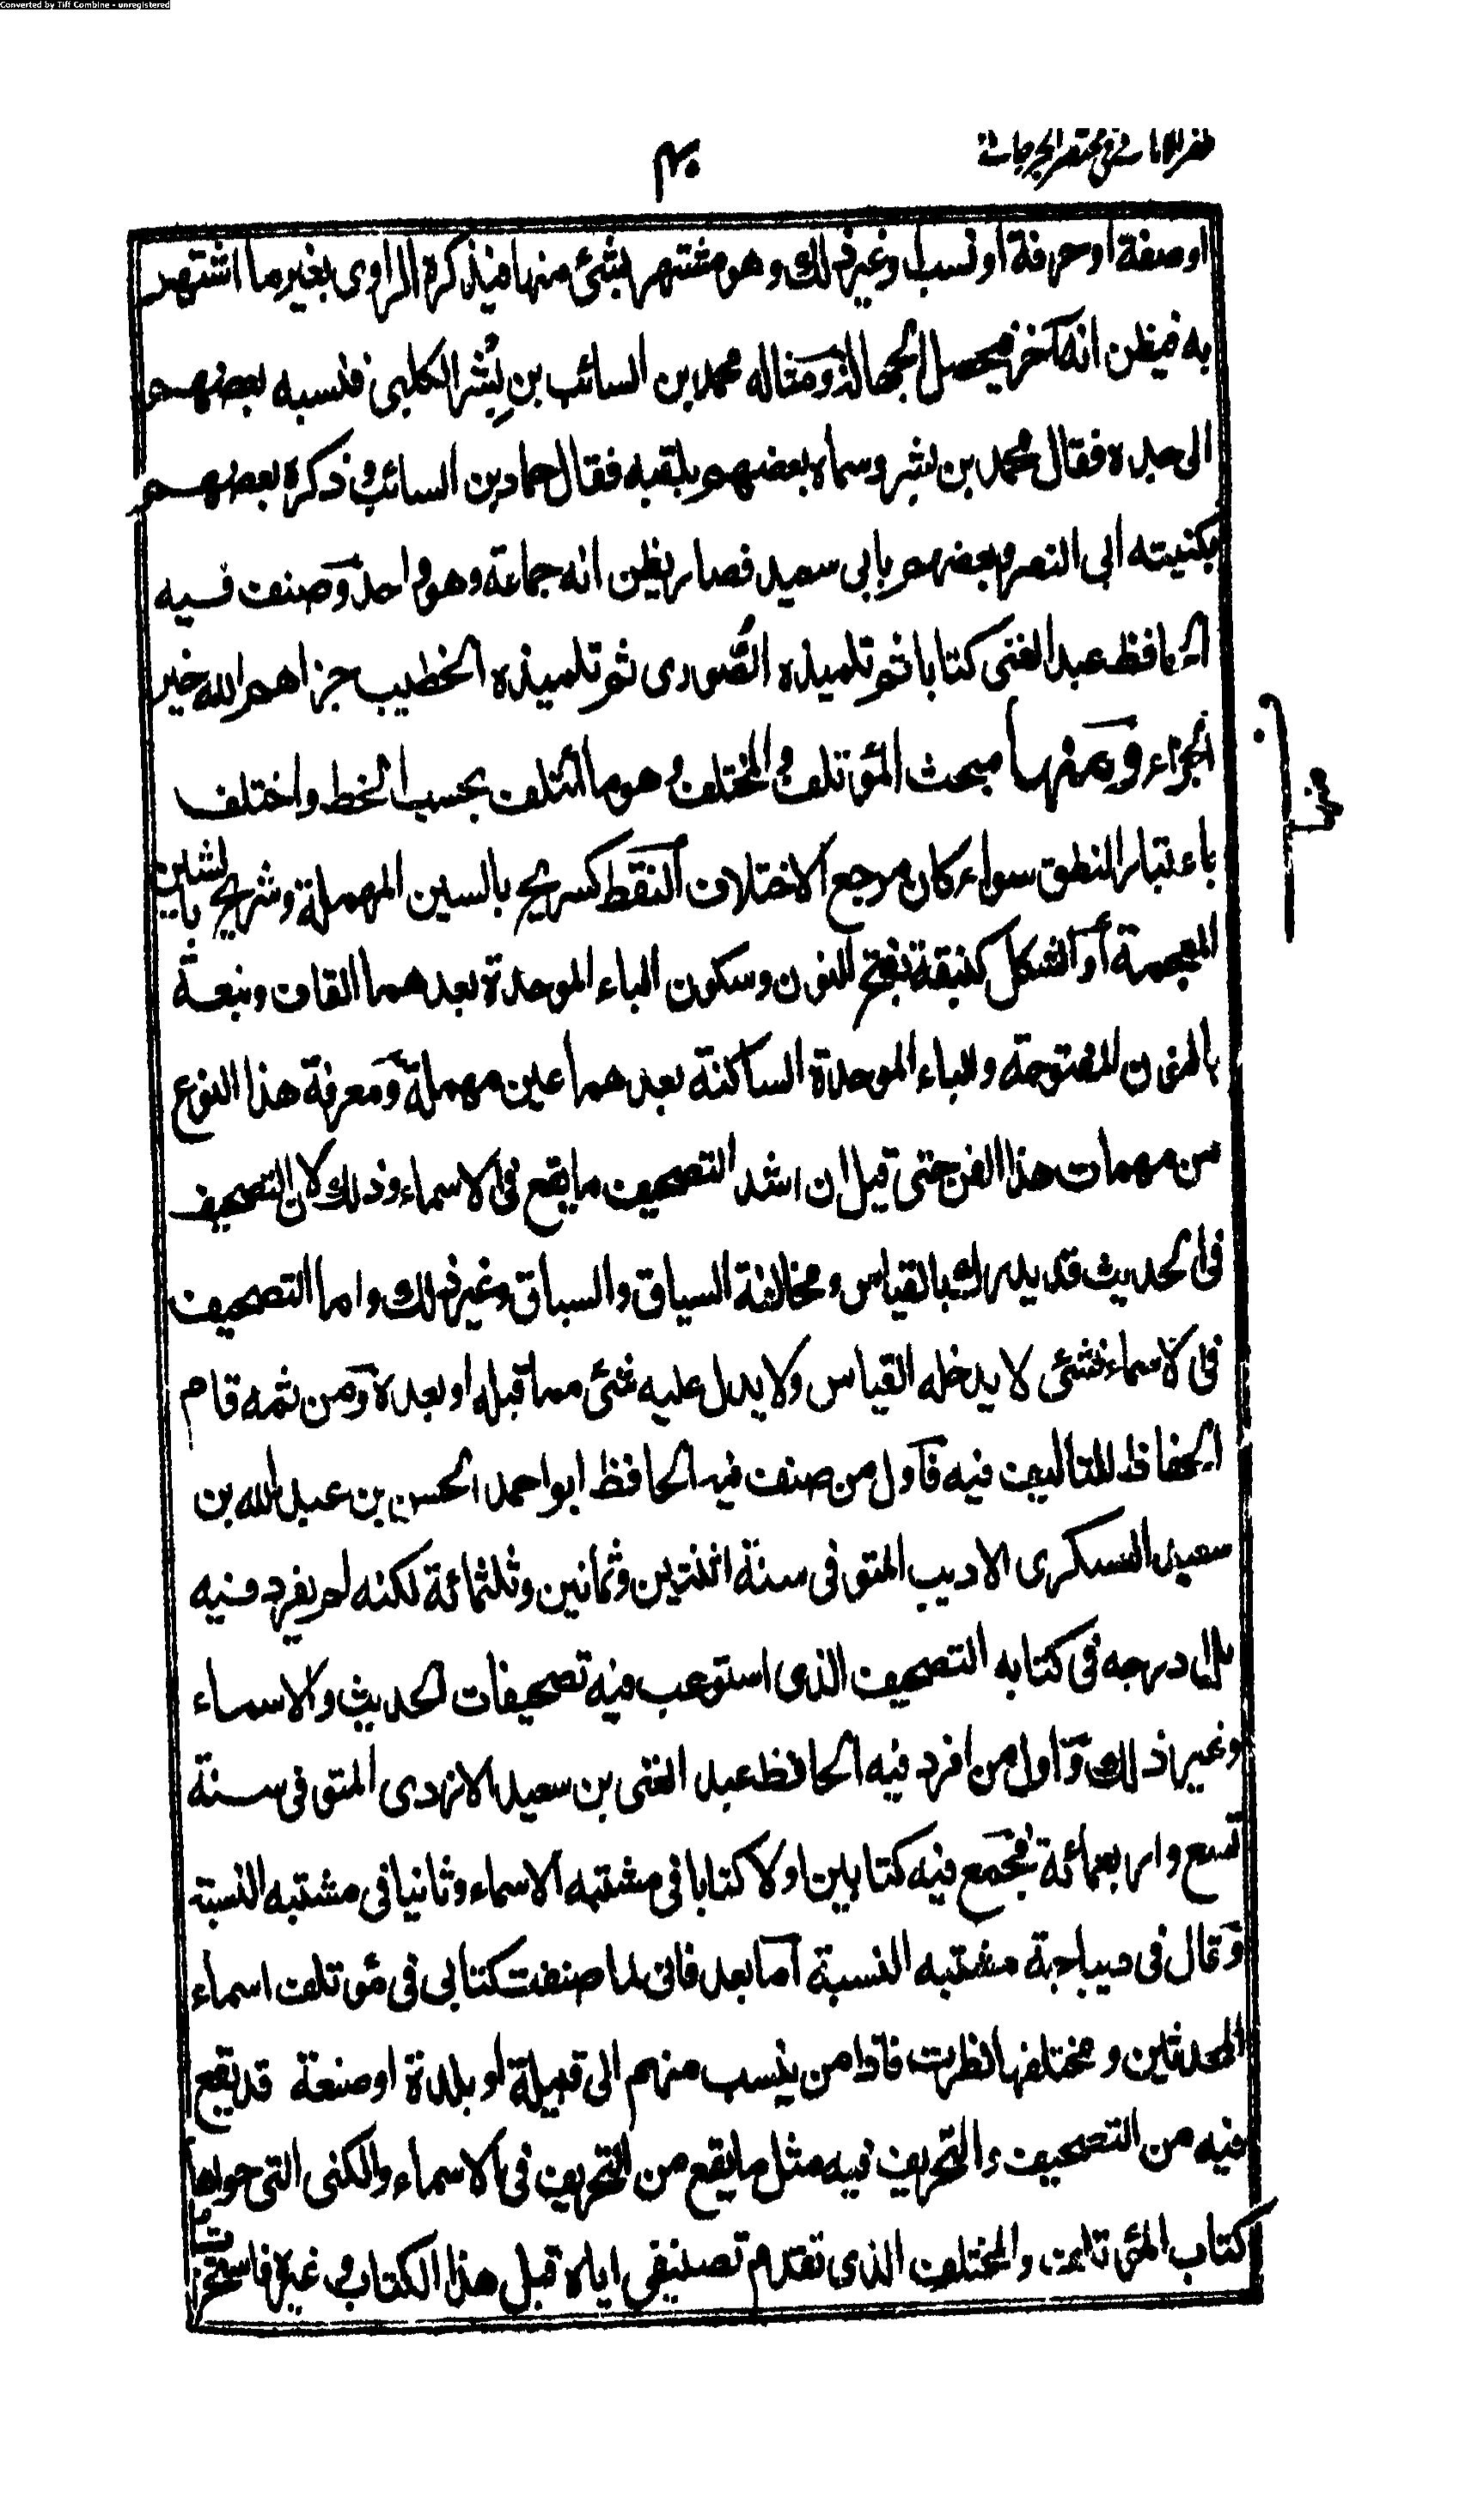 Converted by Tiff Combine - unregistered
ظفر الامانى فى مختصر الجرجانى
٤٠
او صفة او حرفة او نسب او غير ذلك وهو مشتهر بشئ منها فيذكره الراوى بغير ما اشتهر
به فيظن انه آخر فيحصل الجهالة ومثاله محمد بن السائب بن بشر الكلبى فنسبه بعضهم
الى جده فقال محمد بن بشر وسماه بعضهم بلقبه فقال حماد بن السائب وذكره بعضهم
بكنيته ابى النصر وبعضهم بابى سعيد فصار يظن انه جماعة وهو واحد وصنف فيه
الحافظ عبد الغنى كتابا ثم تلميذه الصُورى ثم تلميذه الخطيب جزاهم الله خير
الجزاء ومنها مبحث المؤتلف والمختلف وهو ما ائتلف بحسب الخط واختلف
باعتبار النطق سواء كان مرجع الاختلاف النقط كسريج بالسين المهملة وشريح بالشين
المعجمة او الشكل كنبقة بفتح النون وسكون الباء الموحدة بعدهما القاف ونبعة
بالنون المفتوحة والباء الموحدة الساكنة بعدهما عين مهملة ومعرفة هذا النوع
من مهمات هذا الفن حتى قيل ان اشد التصحيف ما يقع فى الاسماء وذلك لان التصحيف
فى الحديث قد يدرك بالقياس ومخالفة السياق والسباق وغير ذلك واما التصحيف
فى الاسماء فشئ لا يدخله القياس ولا يدل عليه شئ مما قبله او بعده ومن ثمه قام
الحفاظ للتاليف فيه فاول من صنف فيه الحافظ ابو احمد الحسن بن عبد الله بن
سعيد العسكرى الاديب المتوفى سنة اثنتين وثمانين وثلثمائة لكنه لم يفرد فيه
بل ادرجه فى كتابه التصحيف الذى استوعب فيه تصحيفات الحديث والاسماء
وغير ذلك واول من افرد فيه الحافظ عبد الغنى بن سعيد الازدى المتوفى سنة
تسع واربعمائة فجمع فيه كتابين اولا كتابا فى مشتبه الاسماء وثانيا فى مشتبه النسبة
وقال فى ديباجة مشتبه النسبة اما بعد فانى لما صنفت كتابى فى مؤتلف اسماء
المحدثين ومختلفها نظرت فاذا من ينسب منهم الى قبيلة او بلدة او صنعة قد يقع
فيه من التصحيف والتحريف فيه مثل ما يقع من التحريف فى الاسماء والكنى التى حواها
كتاب المؤتلف والمختلف الذى تقدم تصنيفى اياه قبل هذا الكتاب